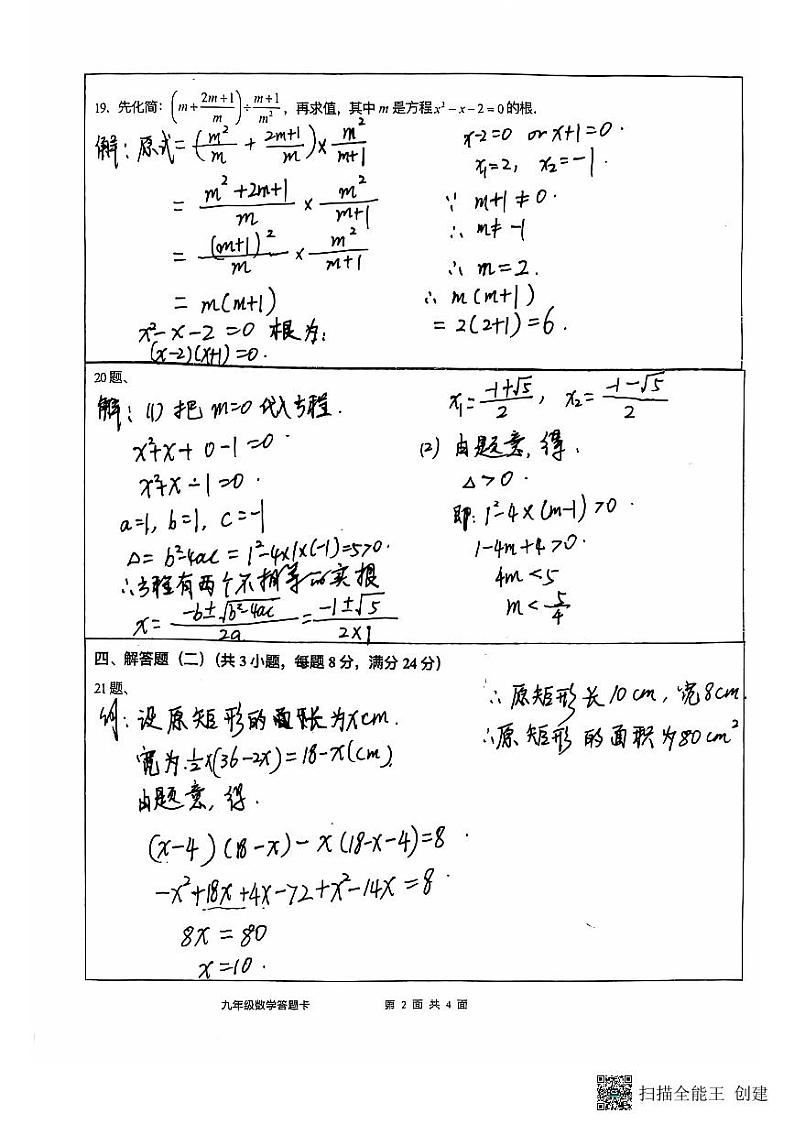 19、先化简：(m+(2m+1)/m)÷(m+1)/m²，再求值，其中m是方程x²-x-2=0的根.
解：原式=(m²/m + (2m+1)/m)×m²/(m+1)
= (m²+2m+1)/m × m²/(m+1)
= (m+1)²/m × m²/(m+1)
= m(m+1)
x²-x-2=0 根为：
(x-2)(x+1)=0.
x-2=0 or x+1=0.
x₁=2, x₂=-1.
∵ m+1≠0.
∴ m≠-1
∴ m=2.
∴ m(m+1)
=2(2+1)=6.
20题、
解：(1) 把 m=0 代入方程.
x²+x+0-1=0.
x²+x-1=0.
a=1, b=1, c=-1
Δ= b²-4ac = 1²-4×1×(-1)=5>0.
∴方程有两个不相等的实根
x= (-b±√(b²-4ac))/2a = (-1±√5)/(2×1)
x₁=(-1+√5)/2, x₂=(-1-√5)/2
(2) 由题意, 得.
Δ>0.
即: 1²-4×(m-1)>0.
1-4m+4>0.
4m<5
m<5/4
四、解答题（二）（共3小题，每题8分，满分24分）
21题、
解：设原矩形的长为xcm.
宽为½×(36-2x)=18-x(cm)
由题意, 得.
(x-4)(18-x)-x(18-x-4)=8.
-x²+18x+4x-72+x²-14x=8.
8x=80
x=10.
∴原矩形长10cm, 宽8cm.
∴原矩形的面积为80cm²
九年级数学答题卡 第 2 面 共 4 面
扫描全能王 创建